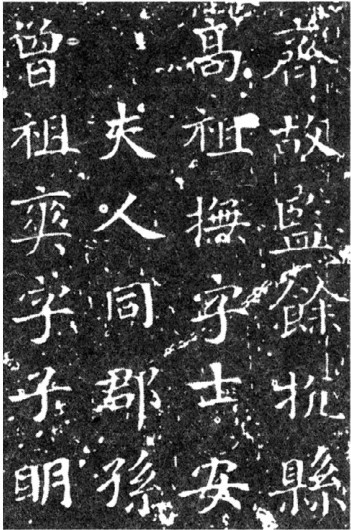 齊故監餘杭縣
高祖撫字士安
夫人同郡孫
曾祖爽字子明